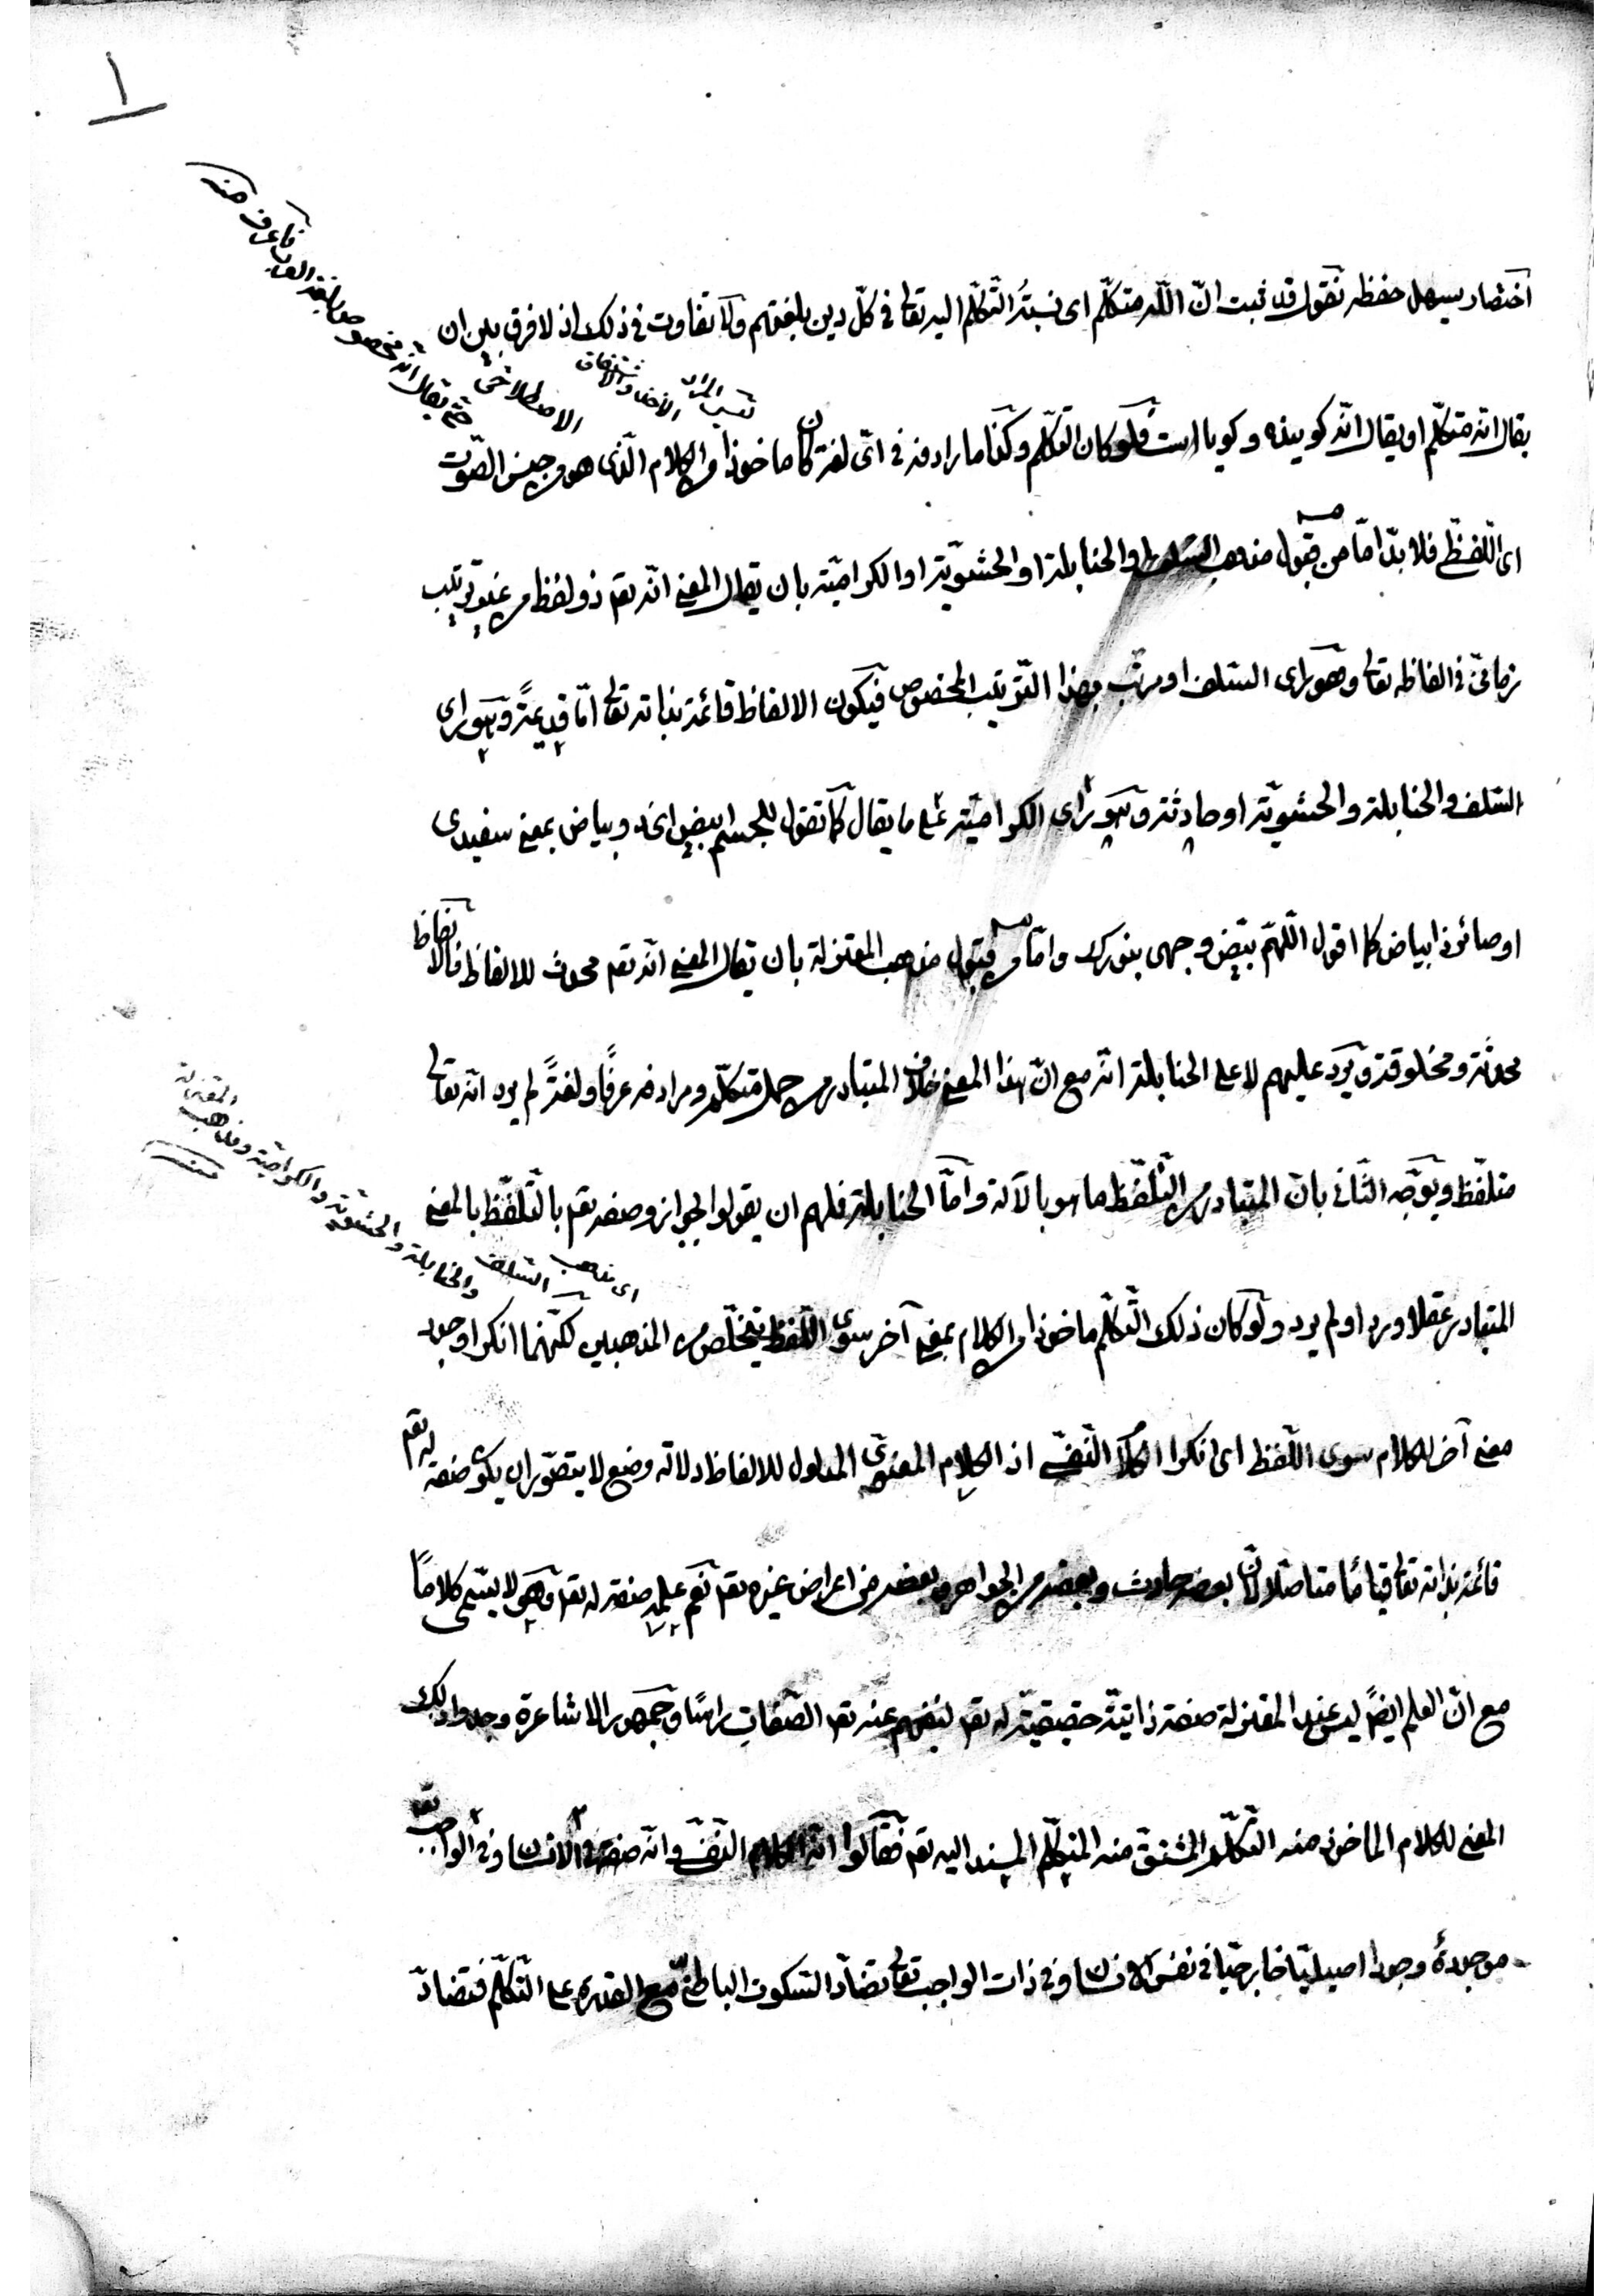 ١
اختصار يسهل حفظه نقول قد ثبت انّ اللّه متكلّم اى نسبتُه التّكلّم اليه تعالى فى كلّ دين بلغتهم ولا تفاوت فى ذلك اذ لا فرق بين ان
يقال انّه متكلّم او يقال انّه كوينده وكويا است فلو كان التكلّم وكذا ما رادفه فى اىّ لغة كان ماخوذا من الكلام الّذى هو من جنس الصّوت
اى اللّفظىّ فلا بدّ امّا من قبول مذهب السّلف والحنابلة او الحشويّة او الكراميّة بان يقال المعنى انّه تعم ذو لفظ من غير ترتيب
زمانىّ فى الفاظه تعالى وهو راى السّلف او مرتّب بهذا التّرتيب المخصوص فيكون الالفاظ قائمة بذاته تعالى امّا قديمةً وهو راى
السّلف والحنابلة والحشويّة او حادثة وهو راى الكراميّة على ما يقال كما تقول للجسم ابيض اى ذو بياض بمعنى سفيدى
او صائر ذا بياض كما اقول اللّهمّ بيّض وجهى بنورك وامّا من قبول مذهب المعتزلة بان يقال المعنى انّه تعم محدث للالفاظ فالالفاظ
محدثة ومخلوقة ويرد عليهم لا على الحنابلة انّه مع انّ هذا المعنى خلاف المتبادر من حمل متكلّم ومرادفه عرفًا ولغةً لم يرد انّه تعالى
متلفّظ ويوجّه الثّانى بانّ المتبادر من التّلفّظ ما هو بالآلة وامّا الحنابلة فلهم ان يقولوا لجواز وصفه تعم بالتّلفّظ بالمعنى
المتبادر عقلا ورد او لم يرد ولو كان ذلك التّكلّم ماخوذا من الكلام بمعنى آخر سوى اللّفظ يتخلّص من المذهبين لكنّهما انكرا وجود
معنى آخر للكلام سوى اللّفظ اى انكروا الكلام النّفسىّ اذ الكلام المعنوىّ المدلول للالفاظ دلالة وضع لا يتصوّر ان يكون صفة له تعم
قائمة بذاته تعالى قياما متاصّلا لانّ بعضه حادث وبعضه من الجواهر وبعضه من اعراض غيره تعم نعم علمه صفة له تعم وهو لا يسمّى كلامًا
مع انّ العلم ايضًا ليس عند المعتزلة صفة ذاتيّة حقيقيّة له تعم لنفيهم عنه تعم الصّفات راسًا وجمهور الاشاعرة وجدوا ذلك
المعنى للكلام الماخوذ منه التّكلّم المشتقّ منه المتكلّم المسند اليه تعم فقالوا انّه الكلام النّفسىّ وانّه صفة فى الانسان وفى الواجب تعم
موجودة وجودا اصيليّا خارجيّا فى نفس الانسان وفى ذات الواجب تعالى تضادّ السّكوت الباطنىّ مع القدرة على التّكلّم فتضادّ
اى مذهب السّلف والحنابلة والحشويّة والكراميّة ومذهب المعتزلة
منه